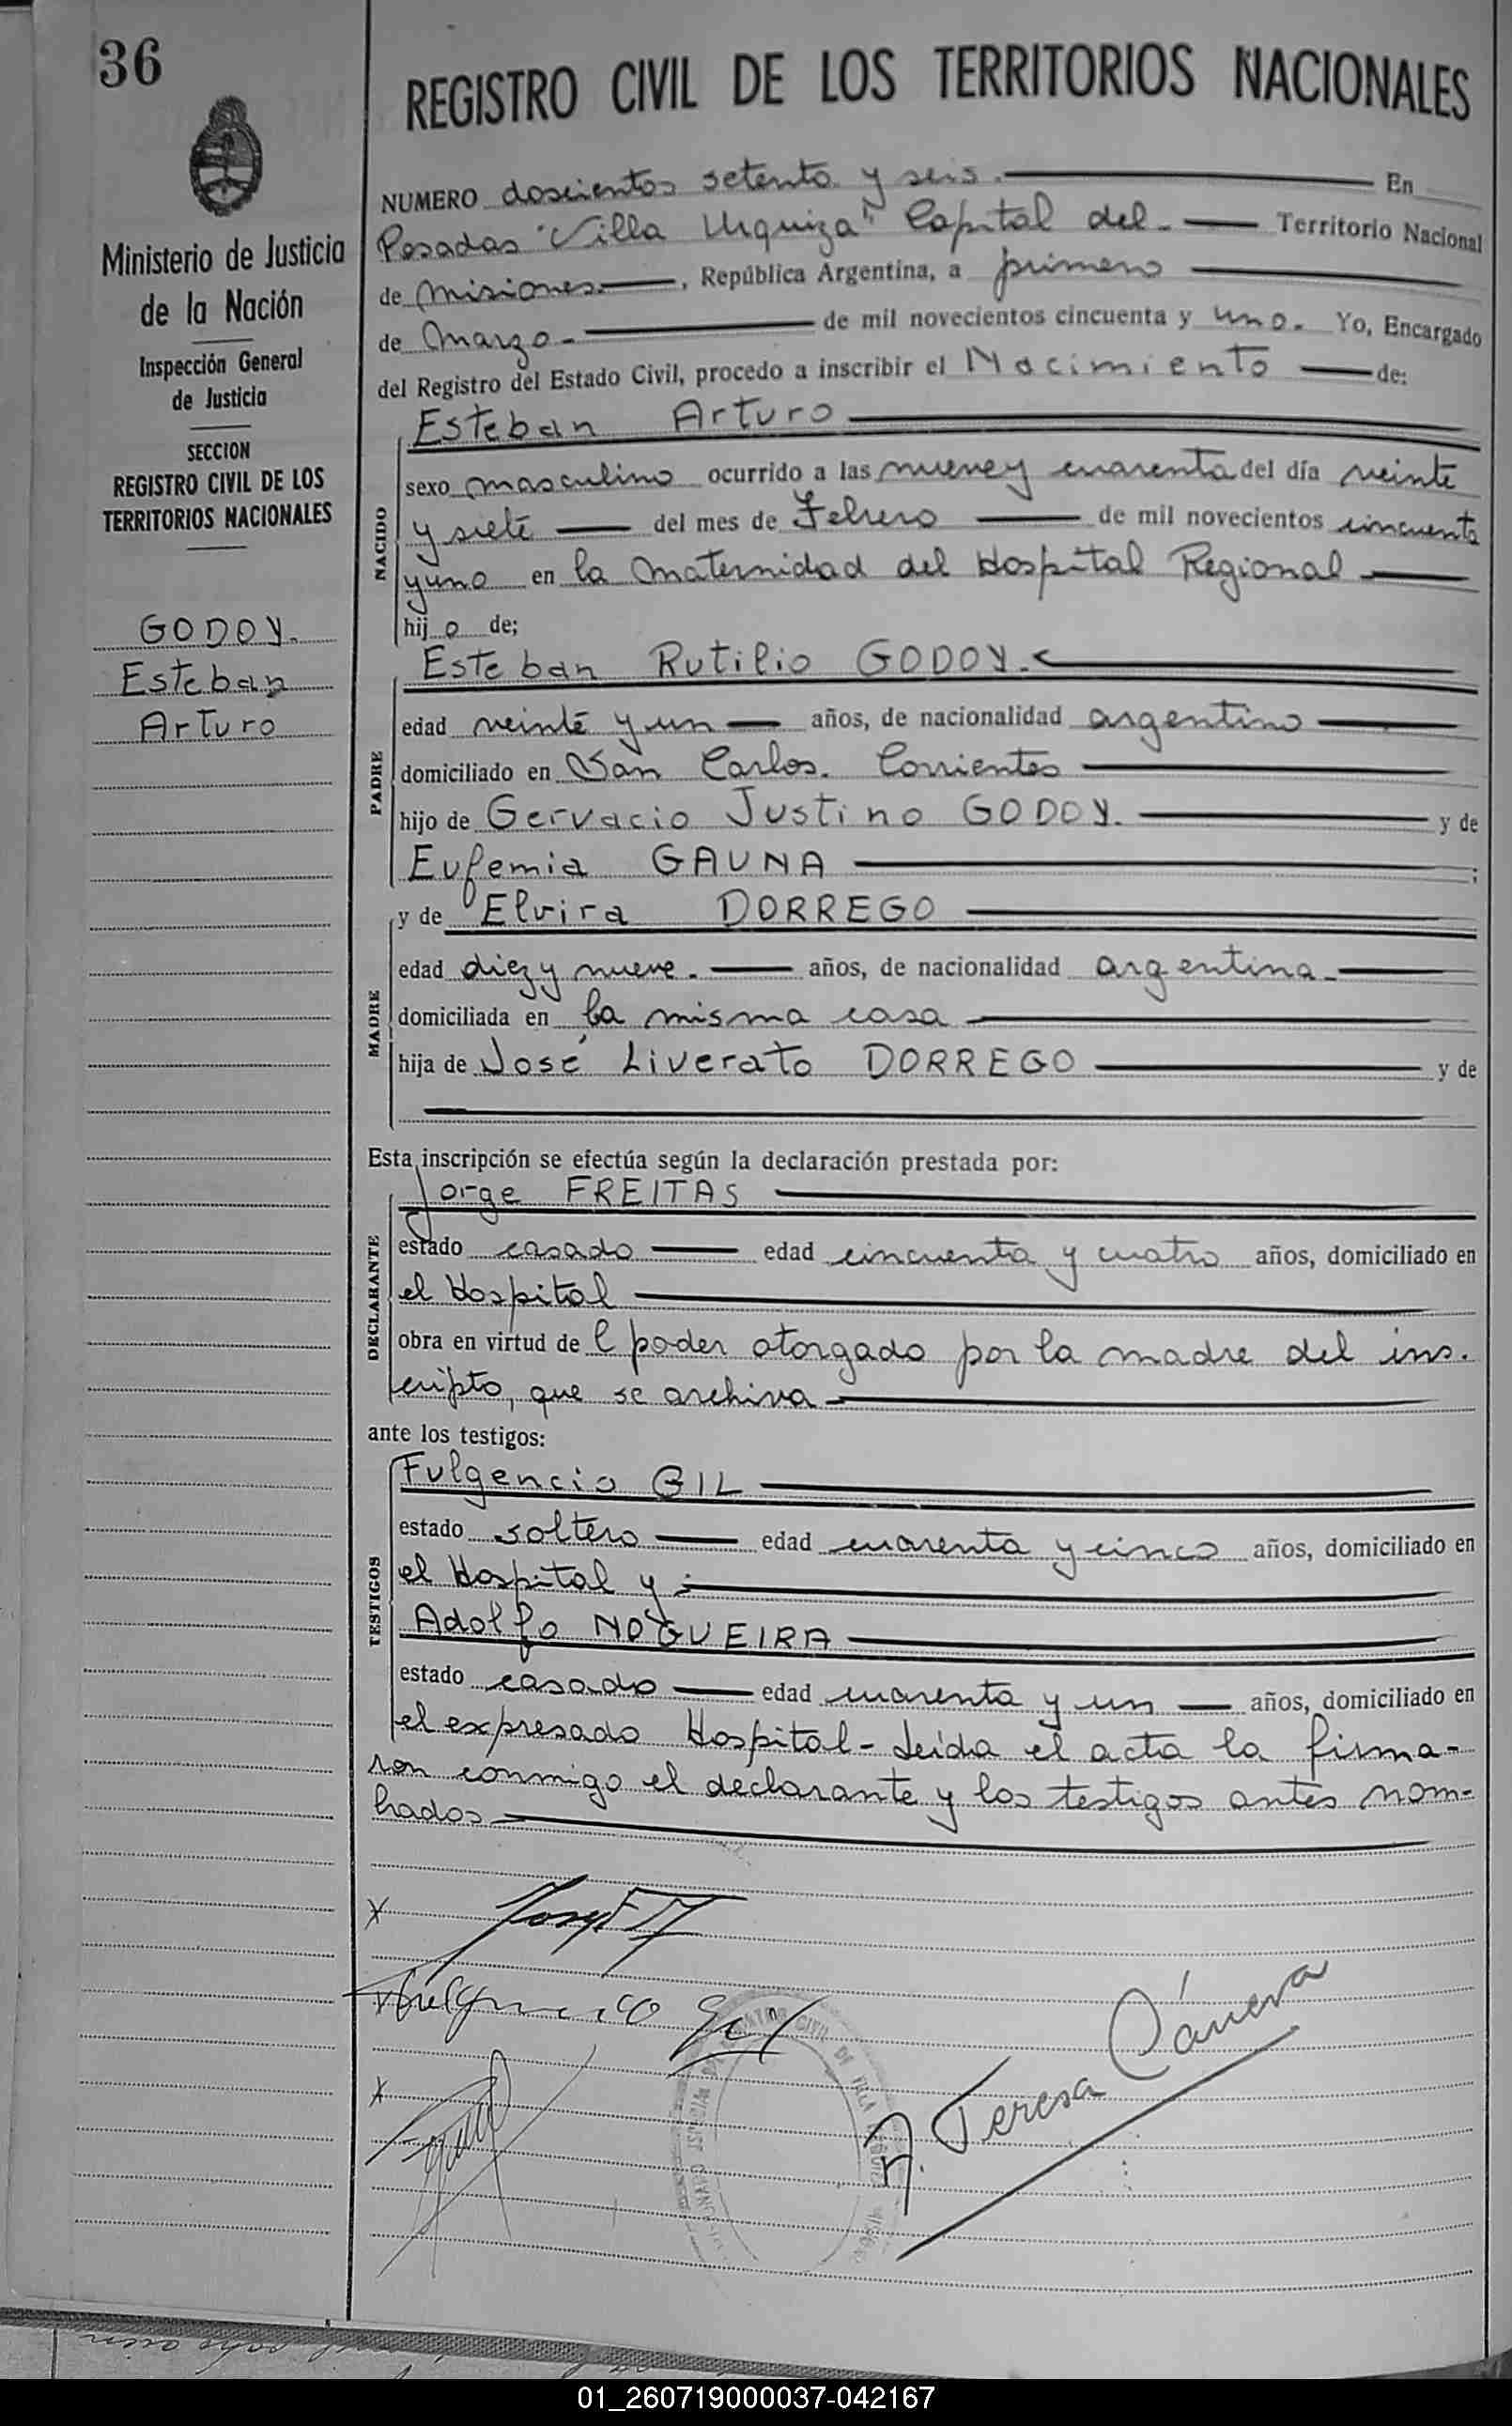 36
REGISTRO CIVIL DE LOS TERRITORIOS NACIONALES
Ministerio de Justicia
de la Nación
Inspección General
de Justicia
SECCION
REGISTRO CIVIL DE LOS
TERRITORIOS NACIONALES
GODOY.
Esteban
Arturo
NUMERO doscientos setenta y seis. En
Posadas "Villa Urquiza" Capital del Territorio Nacional
de Misiones, República Argentina, a primero
de Marzo. de mil novecientos cincuenta y uno. Yo, Encargado
del Registro del Estado Civil, procedo a inscribir el Nacimiento de:
NACIDO
Esteban Arturo
sexo masculino ocurrido a las nueve y cuarenta del día veinte
y siete del mes de Febrero de mil novecientos cincuenta
y uno en la Maternidad del Hospital Regional
hijo de;
PADRE
Esteban Rutilio GODOY.
edad veinte y un años, de nacionalidad argentino
domiciliado en San Carlos. Corrientes
hijo de Gervacio Justino GODOY. y de
Eufemia GAUNA ;
MADRE
y de Elvira DORREGO
edad diez y nueve. años, de nacionalidad argentina.
domiciliada en la misma casa
hija de José Liverato DORREGO y de
Esta inscripción se efectúa según la declaración prestada por:
DECLARANTE
Jorge FREITAS
estado casado edad cincuenta y cuatro años, domiciliado en
el Hospital
obra en virtud de l poder otorgado por la madre del ins.
cripto, que se archiva
ante los testigos:
TESTIGOS
Fulgencio GIL
estado soltero edad cuarenta y cinco años, domiciliado en
el Hospital y :
Adolfo NOGUEIRA
estado casado edad cuarenta y un años, domiciliado en
el expresado Hospital - Leída el acta la firma-
ron conmigo el declarante y los testigos antes nom-
brados
X
Fulgencio Gil
X
A. Teresa Cáneva
01_260719000037-042167